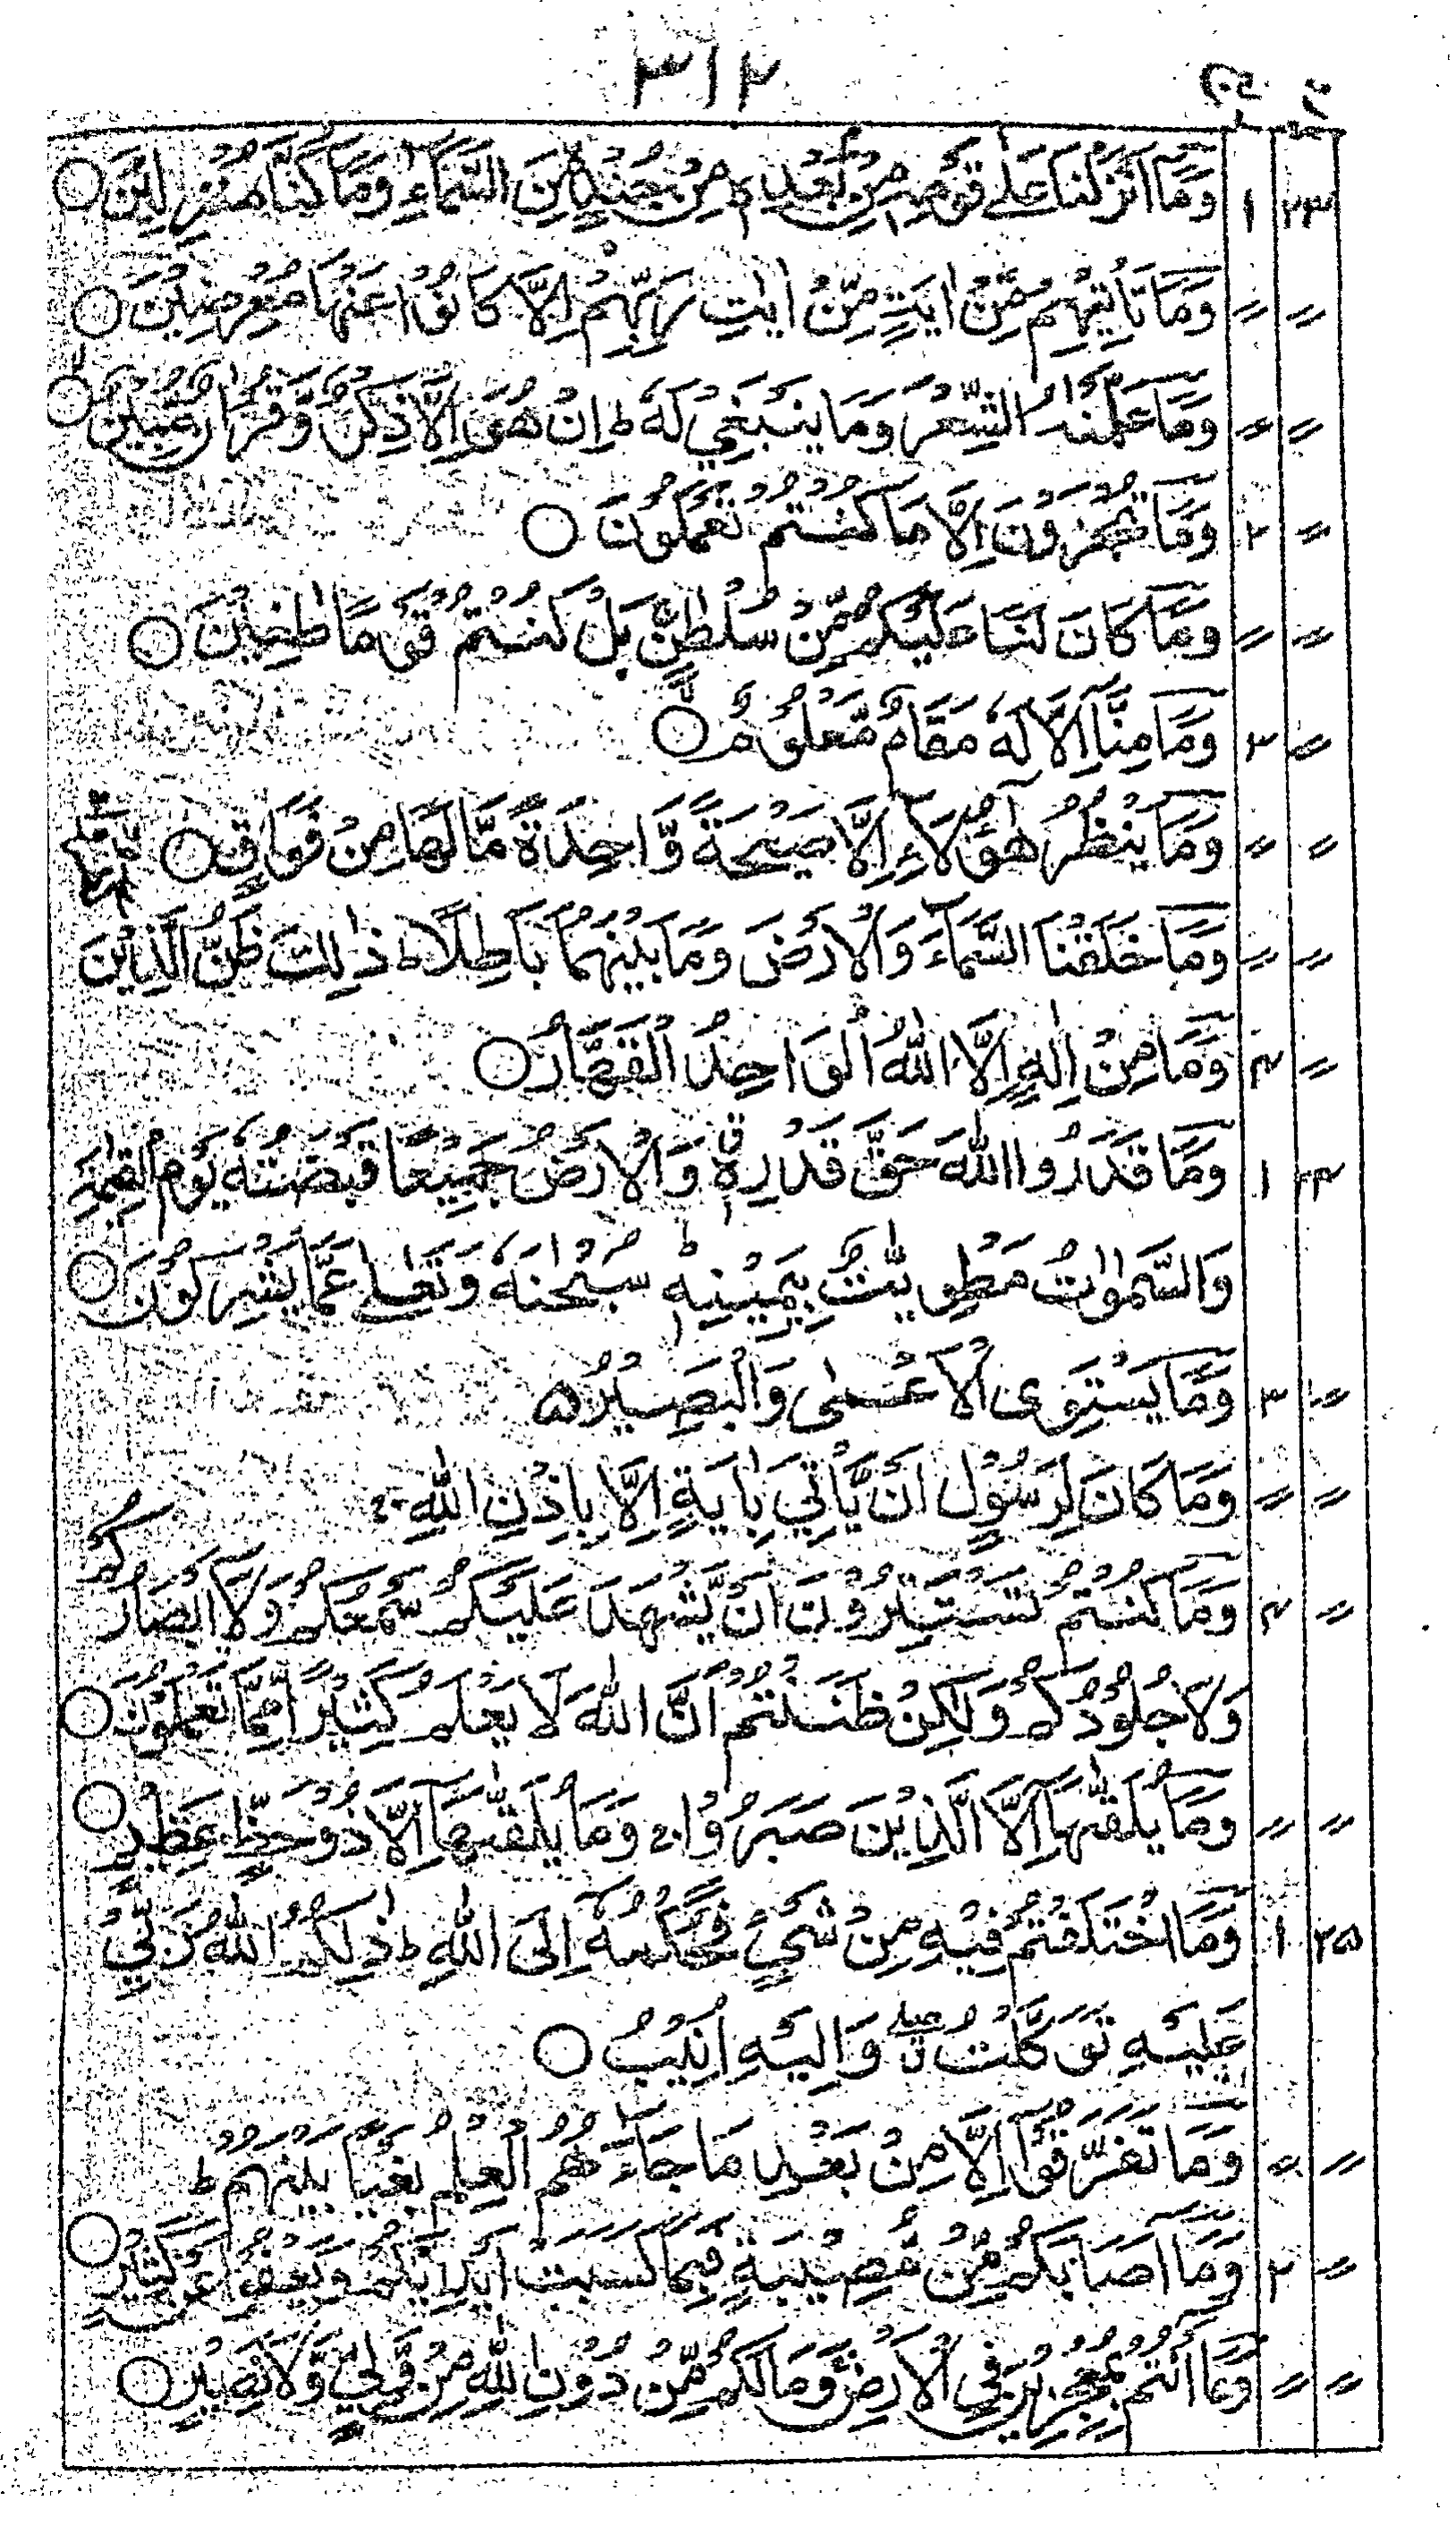 ۳۱۲
۲۳ ۱ وَمَآ اَنْزَلْنَا عَلٰی قَوْمِهٖ مِنْۢ بَعْدِهٖ مِنْ جُنْدٍ مِّنَ السَّمَآءِ وَمَا كُنَّا مُنْزِلِيْنَ ○
〃 〃 وَمَا تَاْتِيْهِمْ مِّنْ اٰيَةٍ مِّنْ اٰيٰتِ رَبِّهِمْ اِلَّا كَانُوْا عَنْهَا مُعْرِضِيْنَ ○
〃 〃 وَمَا عَلَّمْنٰهُ الشِّعْرَ وَمَا يَنْبَغِيْ لَهٗ ؕ اِنْ هُوَ اِلَّا ذِكْرٌ وَّقُرْاٰنٌ مُّبِيْنٌ ○
〃 ۲ وَمَا تُجْزَوْنَ اِلَّا مَا كُنْتُمْ تَعْمَلُوْنَ ○
〃 〃 وَمَا كَانَ لَنَا عَلَيْكُمْ مِّنْ سُلْطٰنٍ بَلْ كُنْتُمْ قَوْمًا طٰغِيْنَ ○
〃 ۳ وَمَا مِنَّآ اِلَّا لَهٗ مَقَامٌ مَّعْلُوْمٌ ○
〃 〃 وَمَا يَنْظُرُ هٰٓؤُلَآءِ اِلَّا صَيْحَةً وَّاحِدَةً مَّا لَهَا مِنْ فَوَاقٍ ○
〃 〃 وَمَا خَلَقْنَا السَّمَآءَ وَالْاَرْضَ وَمَا بَيْنَهُمَا بَاطِلًا ؕ ذٰلِكَ ظَنُّ الَّذِيْنَ
〃 ۴ وَمَا مِنْ اِلٰهٍ اِلَّا اللّٰهُ الْوَاحِدُ الْقَهَّارُ ○
۲۴ ۱ وَمَا قَدَرُوا اللّٰهَ حَقَّ قَدْرِهٖ ۖق وَالْاَرْضُ جَمِيْعًا قَبْضَتُهٗ يَوْمَ الْقِيٰمَةِ
وَالسَّمٰوٰتُ مَطْوِيّٰتٌۢ بِيَمِيْنِهٖ ؕ سُبْحٰنَهٗ وَتَعٰلٰی عَمَّا يُشْرِكُوْنَ ○
〃 ۳ وَمَا يَسْتَوِی الْاَعْمٰی وَالْبَصِيْرُ ۵
〃 〃 وَمَا كَانَ لِرَسُوْلٍ اَنْ يَّاْتِيَ بِاٰيَةٍ اِلَّا بِاِذْنِ اللّٰهِ ۚ
〃 ۴ وَمَا كُنْتُمْ تَسْتَتِرُوْنَ اَنْ يَّشْهَدَ عَلَيْكُمْ سَمْعُكُمْ وَلَآ اَبْصَارُكُمْ
وَلَا جُلُوْدُكُمْ وَلٰكِنْ ظَنَنْتُمْ اَنَّ اللّٰهَ لَا يَعْلَمُ كَثِيْرًا مِّمَّا تَعْمَلُوْنَ ○
〃 〃 وَمَا يُلَقّٰهَآ اِلَّا الَّذِيْنَ صَبَرُوْا ۚ وَمَا يُلَقّٰهَآ اِلَّا ذُوْ حَظٍّ عَظِيْمٍ ○
۲۵ ۱ وَمَا اخْتَلَفْتُمْ فِيْهِ مِنْ شَيْءٍ فَحُكْمُهٗٓ اِلَی اللّٰهِ ؕ ذٰلِكُمُ اللّٰهُ رَبِّيْ
عَلَيْهِ تَوَكَّلْتُ ۖق وَاِلَيْهِ اُنِيْبُ ○
〃 〃 وَمَا تَفَرَّقُوْٓا اِلَّا مِنْۢ بَعْدِ مَا جَآءَهُمُ الْعِلْمُ بَغْيًۢا بَيْنَهُمْ ؕ
〃 ۲ وَمَآ اَصَابَكُمْ مِّنْ مُّصِيْبَةٍ فَبِمَا كَسَبَتْ اَيْدِيْكُمْ وَيَعْفُوْا عَنْ كَثِيْرٍ ○
〃 〃 وَمَآ اَنْتُمْ بِمُعْجِزِيْنَ فِي الْاَرْضِ وَمَا لَكُمْ مِّنْ دُوْنِ اللّٰهِ مِنْ وَّلِيٍّ وَّلَا نَصِيْرٍ ○